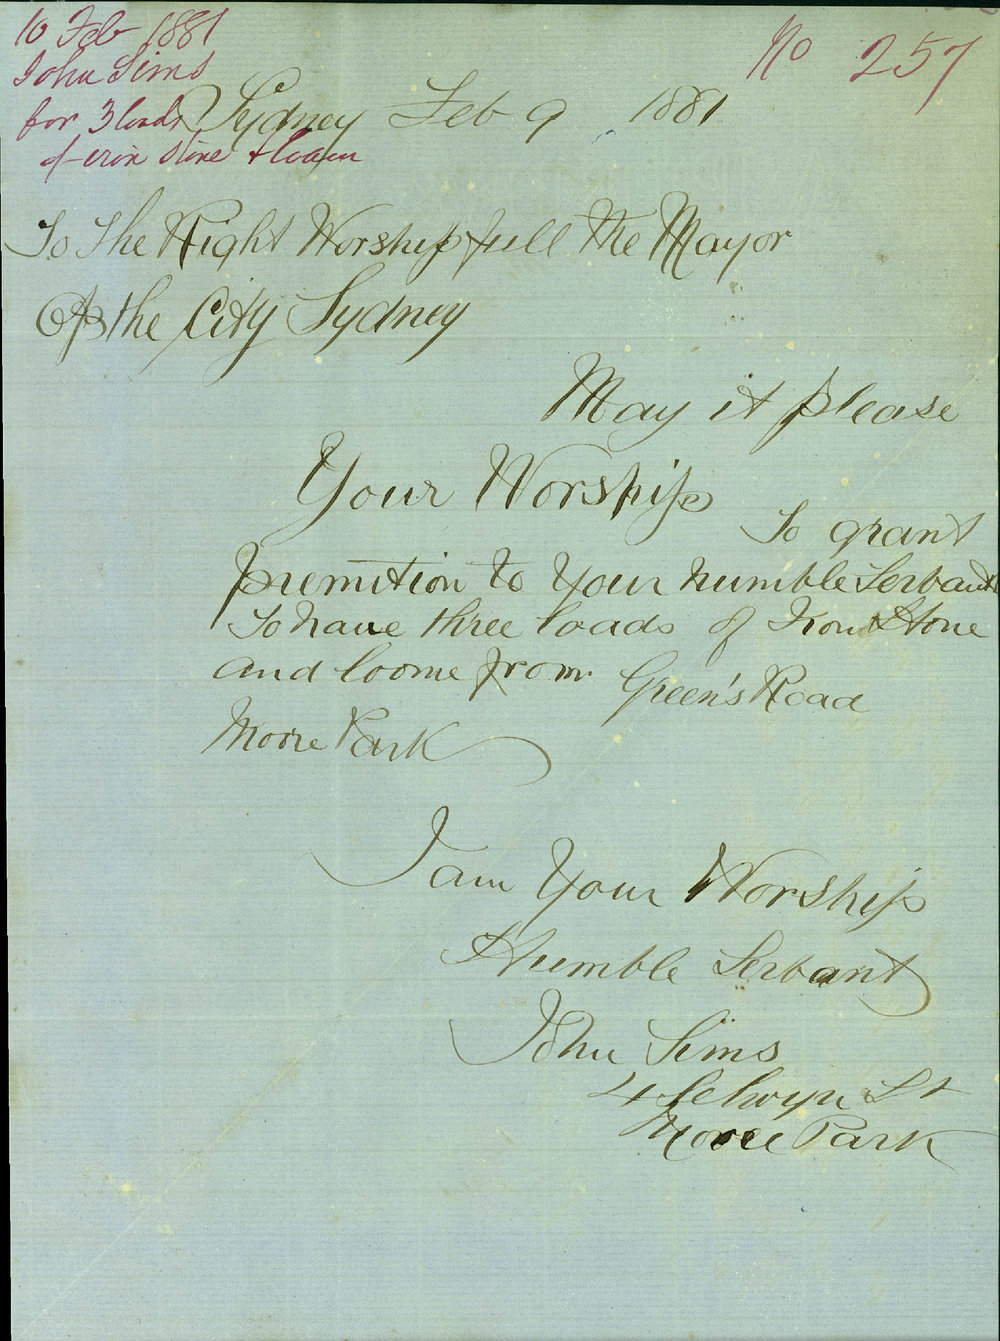 10 Feb 1881
John Sims
for 3 loads
of iron stone & loam
No 257
Sydney Feb 9 1881
To The Right Worshipfull the Mayor
Of the City Sydney
May it please
Your Worship
To grant
premition to Your humble Servant
To have three loads of Iron Stone
and loome from Green's Road
Moore Park
I am Your Worship
Humble Servant
John Sims
4 Selwyn St
Moore Park